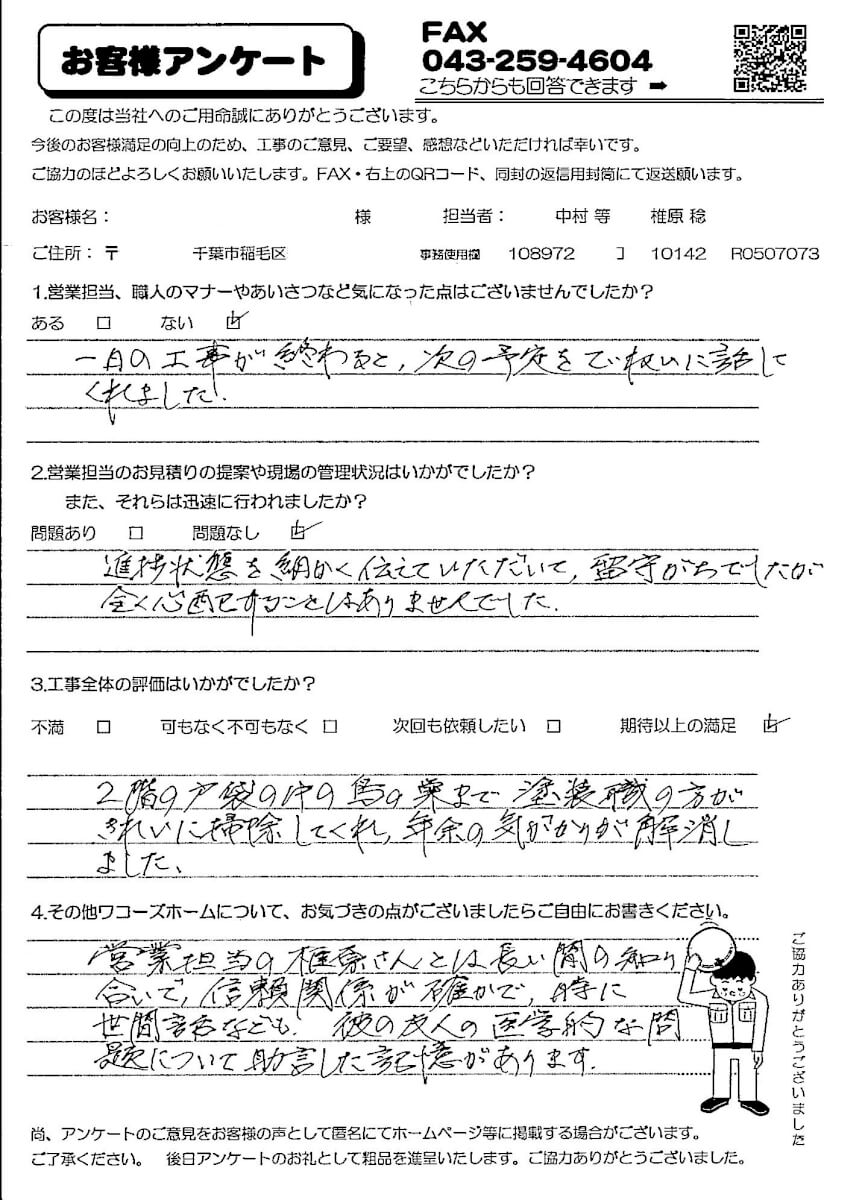 お客様アンケート
FAX
043-259-4604
こちらからも回答できます ➡
この度は当社へのご用命誠にありがとうございます。
今後のお客様満足の向上のため、工事のご意見、ご要望、感想などいただければ幸いです。
ご協力のほどよろしくお願いいたします。FAX・右上のQRコード、同封の返信用封筒にて返送願います。
お客様名： 様 担当者： 中村 等 椎原 稔
ご住所：〒 千葉市稲毛区 事務使用欄 108972 コ 10142 R0507073
1.営業担当、職人のマナーやあいさつなど気になった点はございませんでしたか？
ある □ ない ☑
一日の工事が終わると，次の予定をていねいに話して
くれました．
2.営業担当のお見積りの提案や現場の管理状況はいかがでしたか？
また、それらは迅速に行われましたか？
問題あり □ 問題なし ☑
進捗状態を細かく伝えていただいて，留守がちでしたが
全く心配することはありませんでした．
3.工事全体の評価はいかがでしたか？
不満 □ 可もなく不可もなく □ 次回も依頼したい □ 期待以上の満足 ☑
2階の戸袋の中の鳥の巣まで 塗装職の方が
きれいに掃除してくれ，年余の気がかりが解消し
ました、
4.その他ワコーズホームについて、お気づきの点がございましたらご自由にお書きください。
営業担当の椎原さんとは長い間の知り
合いで，信頼関係が確かで，時に
世間話なども．彼の友人の医学的な問
題について助言した記憶があります．
ご協力ありがとうございました
尚、アンケートのご意見をお客様の声として匿名にてホームページ等に掲載する場合がございます。
ご了承ください。 後日アンケートのお礼として粗品を進呈いたします。ご協力ありがとうございました。